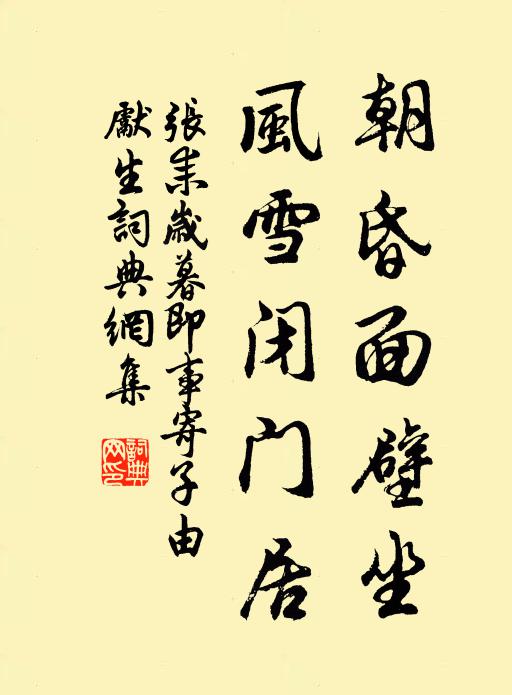 朝昏面壁坐
風雪闭门居
張耒歲暮即事寄子由
獻生詞典網集
詞典网印